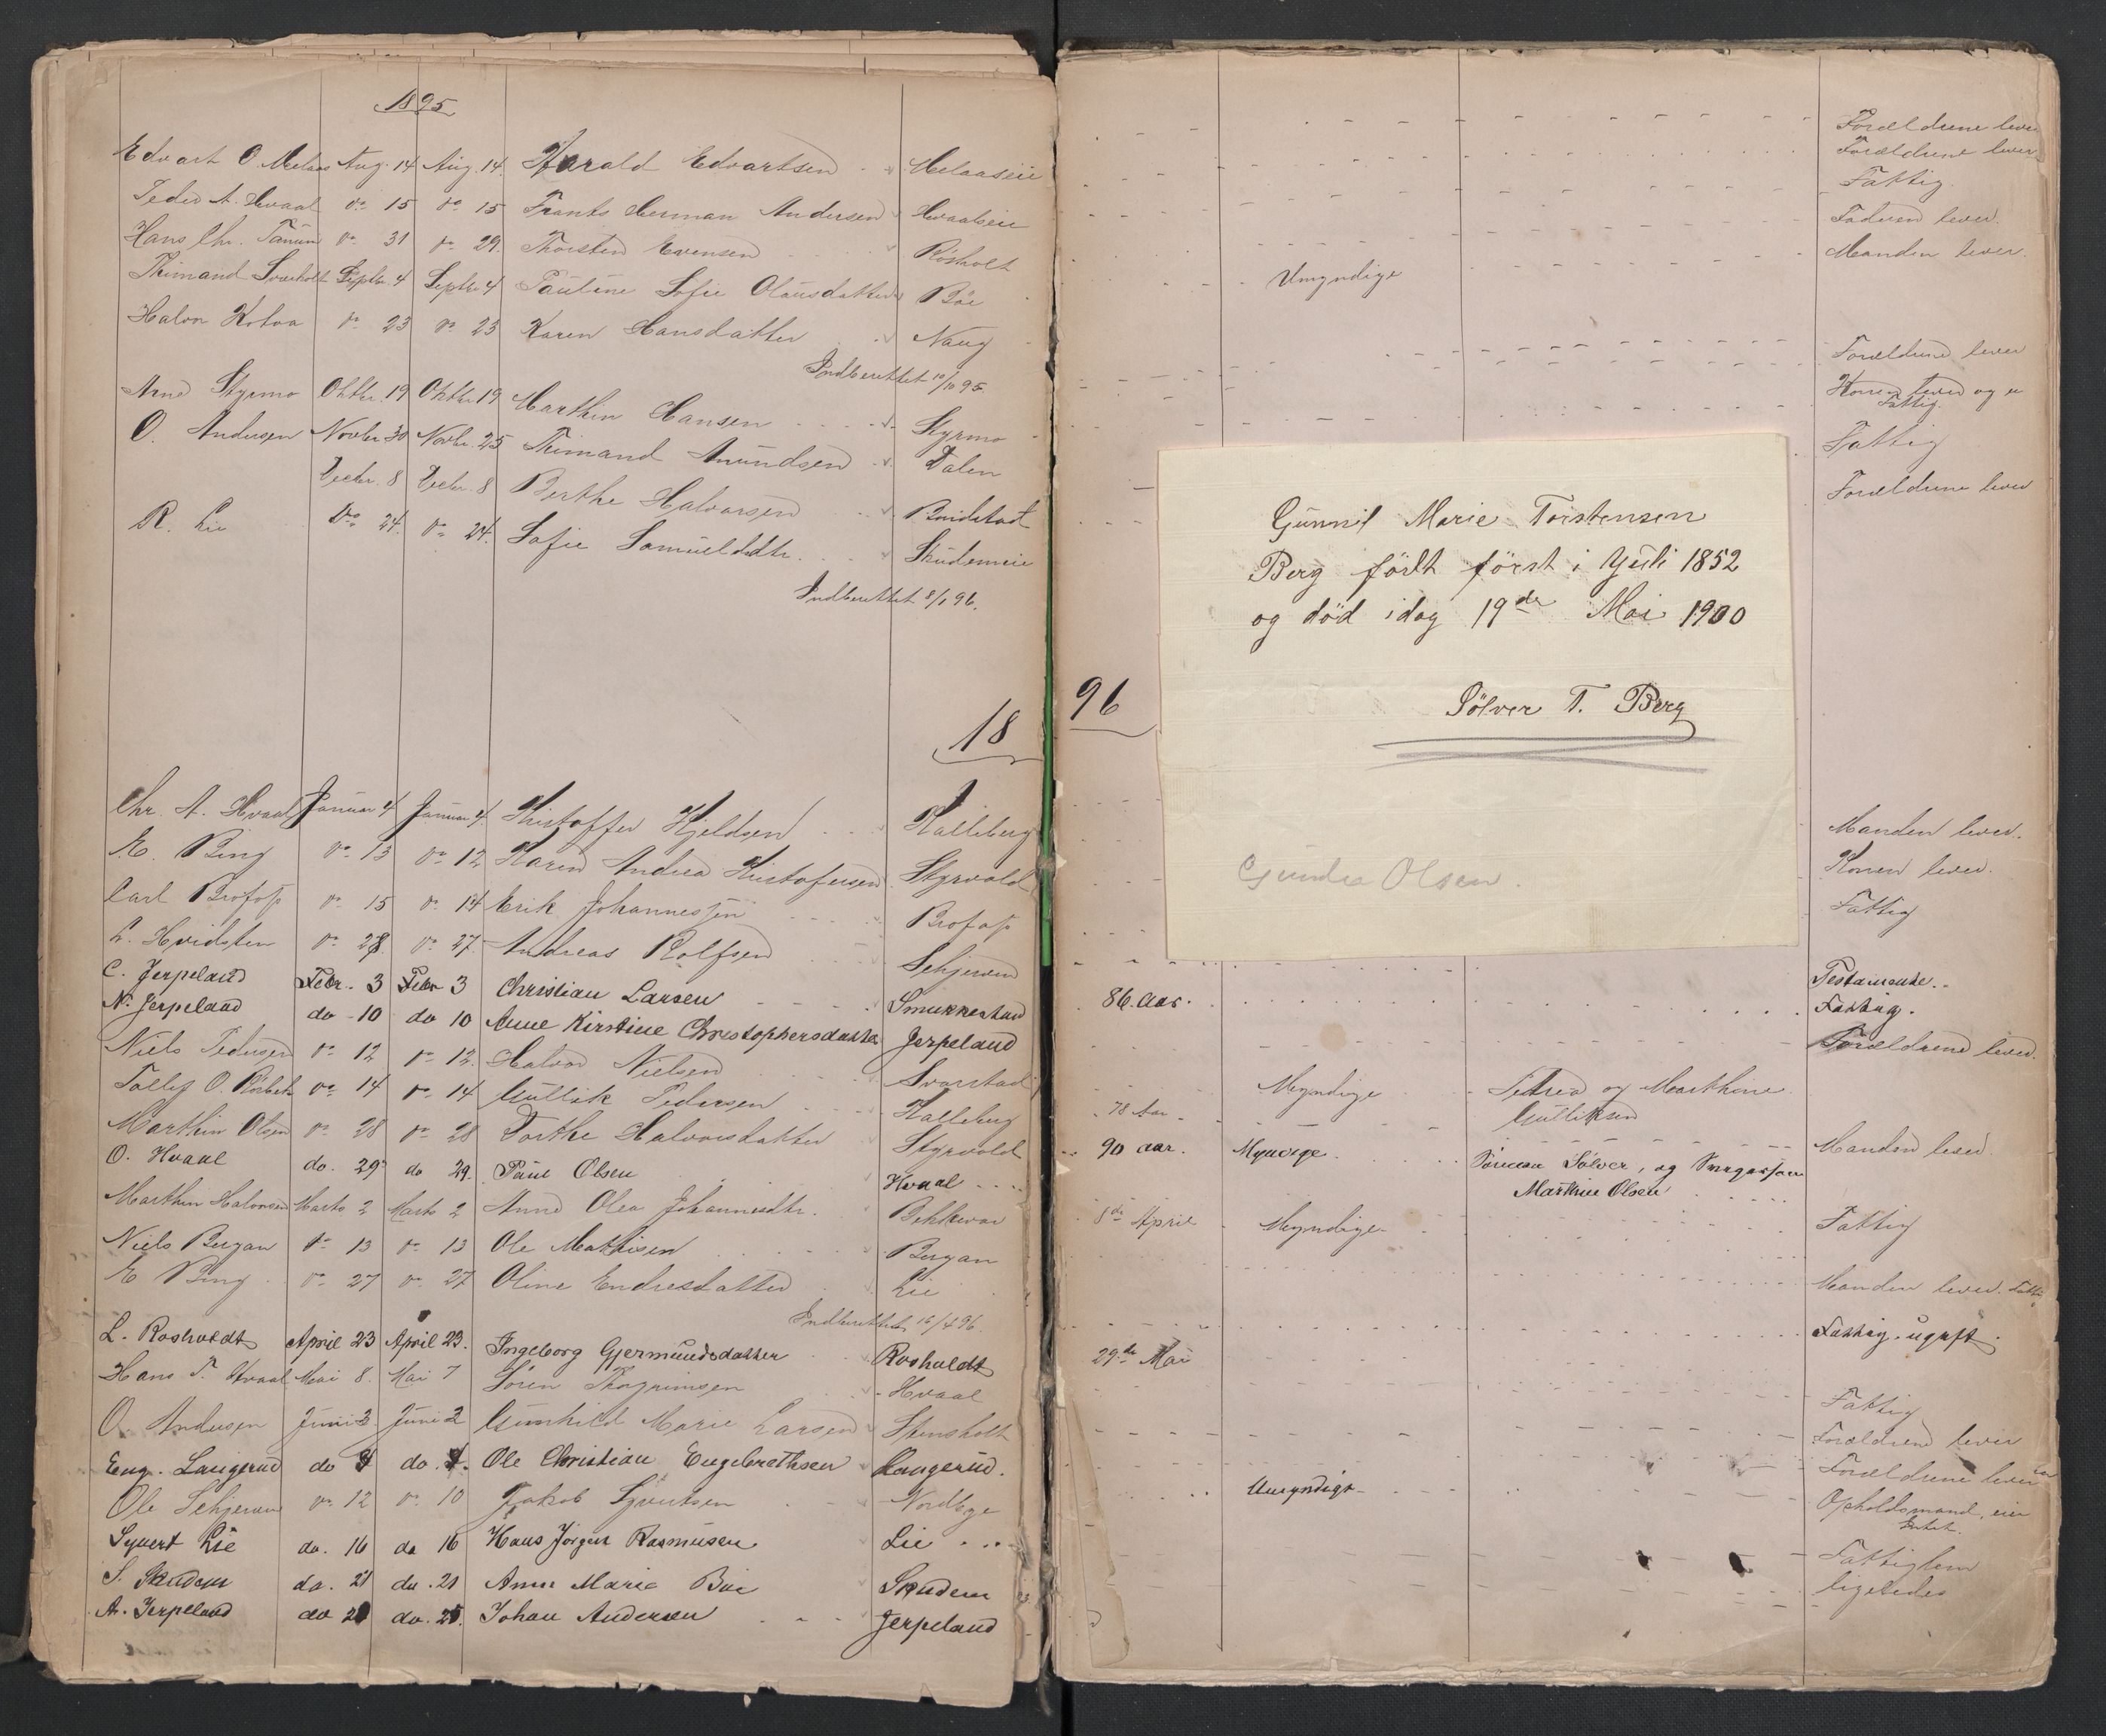 1895
Edvart O Melaas Aug. 14 Aug. 14. Harald Edvartsen Melaaseie
Peder A. Hvaal do 15 do 15 Frants Herman Andersen Hvaaleie
Hans Chr. Tanum do 31 do 29. Thorsten Evensen Rösholt
Thimand Septbr. 4 Septbr 4 Pauline Sofie Olausdatter Böe
Halvor do 23 do 23 Karen Hansdatter Naug
Indberettet 10/10 95.
Arne Styrmo Oktbr. 19 Oktbr. 19 Marthin Hansen Styrmo
O. Andersen Novbr 30 Novbr. 25 Thimand Amundsen Dalen
Decbr. 8 Decbr. 8 Berthe Halvorsen
R. Lie Do 24. do 24. Sofie Samuelsdtr. Skudemeie
Indberettet 8/1 96.
18
Chr. A. Hvaal Januar 4 Januar 4. Kristoffer Kjeldsen Kalleberg
E. Bing do 13 do 12 Karen Andrea Kristofersen Styrvold
Carl Brofos do 15 do 14 Erik Johannessen Brofos
L. Hvidsten do 28 do 27 Andreas Rolfsen Schjerven
C. Jerpeland Febr. 3 Febr 3 Christian Larsen Smukkestad
N. Jerpeland do 10 do 10 Anne Kirstine Christophersdatter Jerpeland
Niels Pedersen do 12 do 12. Halvor Nielsen Svarstad
Tollef O. do 14 do 14 Gullik Pedersen Kalleberg
Marthin Olsen do 28 do 28 Dorthe Halvorsdatter Styrvold
O. Hvaal do. 29 do 29. Paul Olsen Hvaal
Marthin Halvorsen Marts 2 Marts 2 Anne Olea Johannesdtr. Bekkevar
Niels Bergan do 13 do 13 Ole Mathisen Bergan
E Bing do 27 do 27 Oline Endresdatter Lie
Indberettet 16/4 96
L. Rosholdt April 23 April 23. Ingeborg Gjermundsdatter Rosholdt
Hans T. Hvaal Mai 8. Mai 7 Sören Thorgrimsen Hvaal
O. Andersen Juni 3 Juni 2 Gunhild Marie Larsen Stensholt
Eng. Langerud do 4 do. 4. Ole Christian Engebrethsen Langerud.
Ole Schjerven do. 12 do. 10 Jakob Syvertsen Nordbye
Syvert Lie do. 16 do 16 Hans Jörgen Rasmusen Lie
S. Skudem do. 21 do. 21 Anne Marie Boe Skudem
A. Jerpeland do do. 25. Johan Andersen Jerpeland
Forældrene lever
Forældrene lever
Fattig.
Faderen lever.
Manden lever.
Umyndige
Forældrene lever
Konen lever og er
Fattig.
Fattig
Forældrene lever
96
Gunnil Marie Torstensen
Berg födt först i Yuli 1852
og död idag 19de Mai 1900
Sölver T. Berg
Gundro Olsen.
Manden lever.
Konen lever.
Fattig
Testamente.
86. aar. Fattig.
Forældrene lever.
Myndige Petrea og Marthine
78 Aar Gulliksen
90 aar. Myndige. Sölver, og Manden lever.
Marthin Olsen
1de April Myndige Fattig
Manden lever.
Fattig. ugift.
29de Mai
Fattig
Forældrene lever
Forældrene lever
Umyndige Opholdsmand, eier
Intet.
Fattiglem
ligeledes